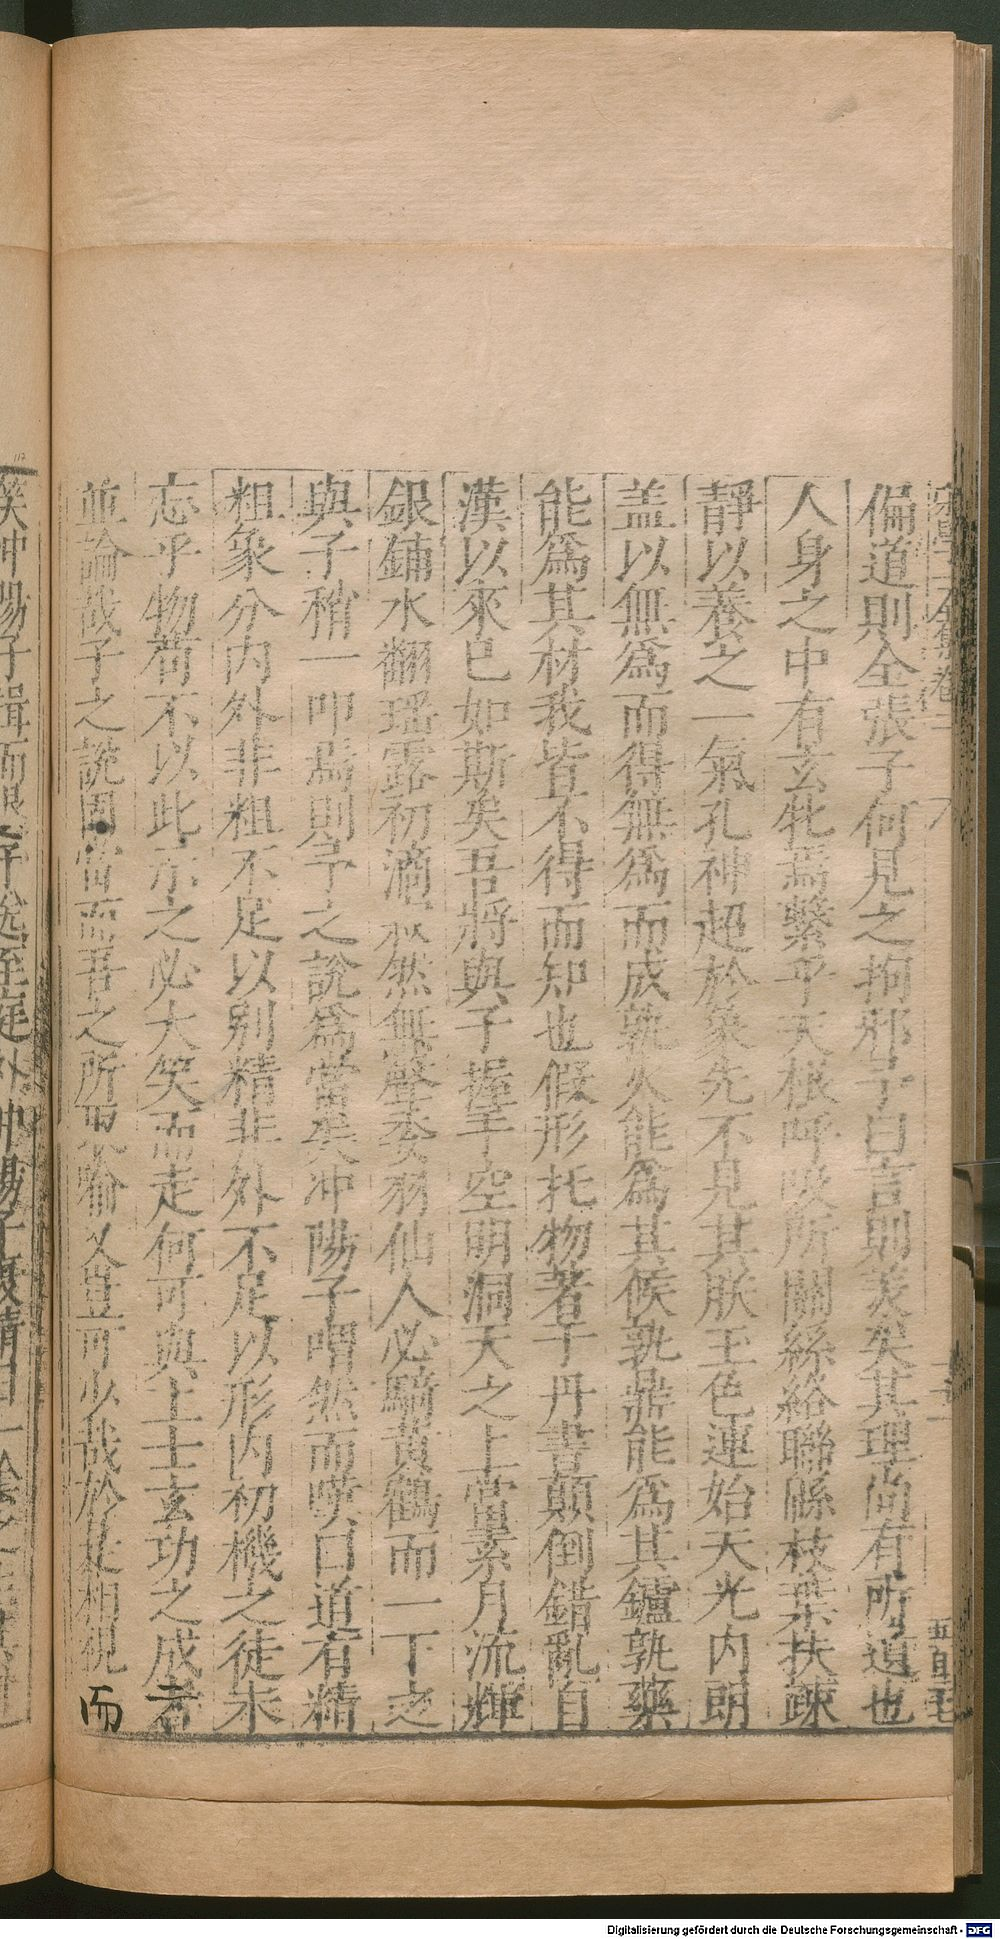 偏道則全張子何見之拘邪予曰言則美矣其理尚有所遺也
人身之中有玄牝焉繫乎天根呼吸所關絲絡聯緜枝葉扶疎
靜以養之一氣孔神超於象先不見其朕玉色蓮始天光內朗
盖以無爲而得無爲而成孰火能爲其候孰鼎能爲其鑪孰藥
能爲其材我皆不得而知也假形托物著于丹書顛倒錯亂自
漢以來已如斯矣吾將與子握手空明洞天之上當素月流輝
銀鋪水翻瑤露初滴然無聲羽仙人必騎黃鶴而一下之
與子稍一叩焉則予之說爲當矣冲陽子喟然而嘆曰道有精
粗象分內外非粗不足以别精非外不足以形内初機之徒未
忘乎物苟不以此示之必大笑而走何可與上士玄功之成者
並論哉子之說固當而吾之所喻又豈可少哉於是相視而
笑冲陽子
Digitalisierung gefördert durch die Deutsche Forschungsgemeinschaft - DFG